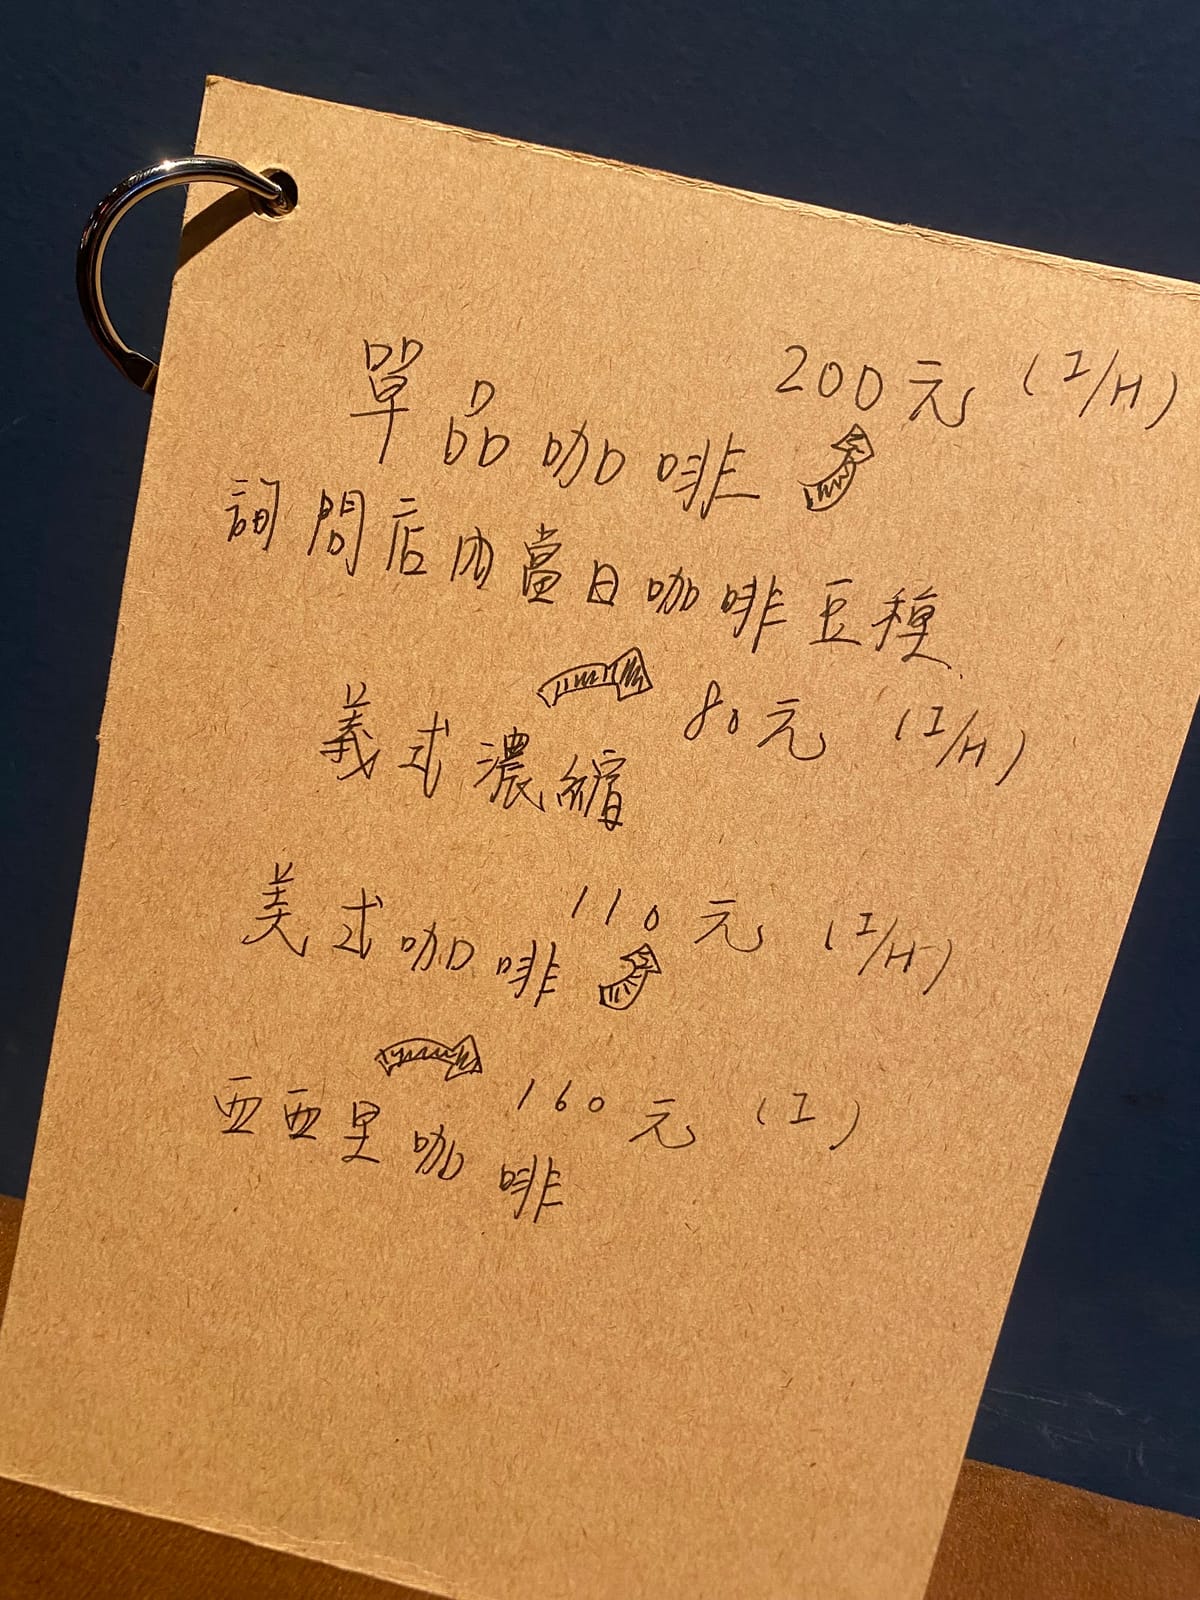 單品咖啡 200元 (I/H)
詢問店內當日咖啡豆種
義式濃縮 80元 (I/H)
美式咖啡 110元 (I/H)
西西里咖啡 160元 (I)